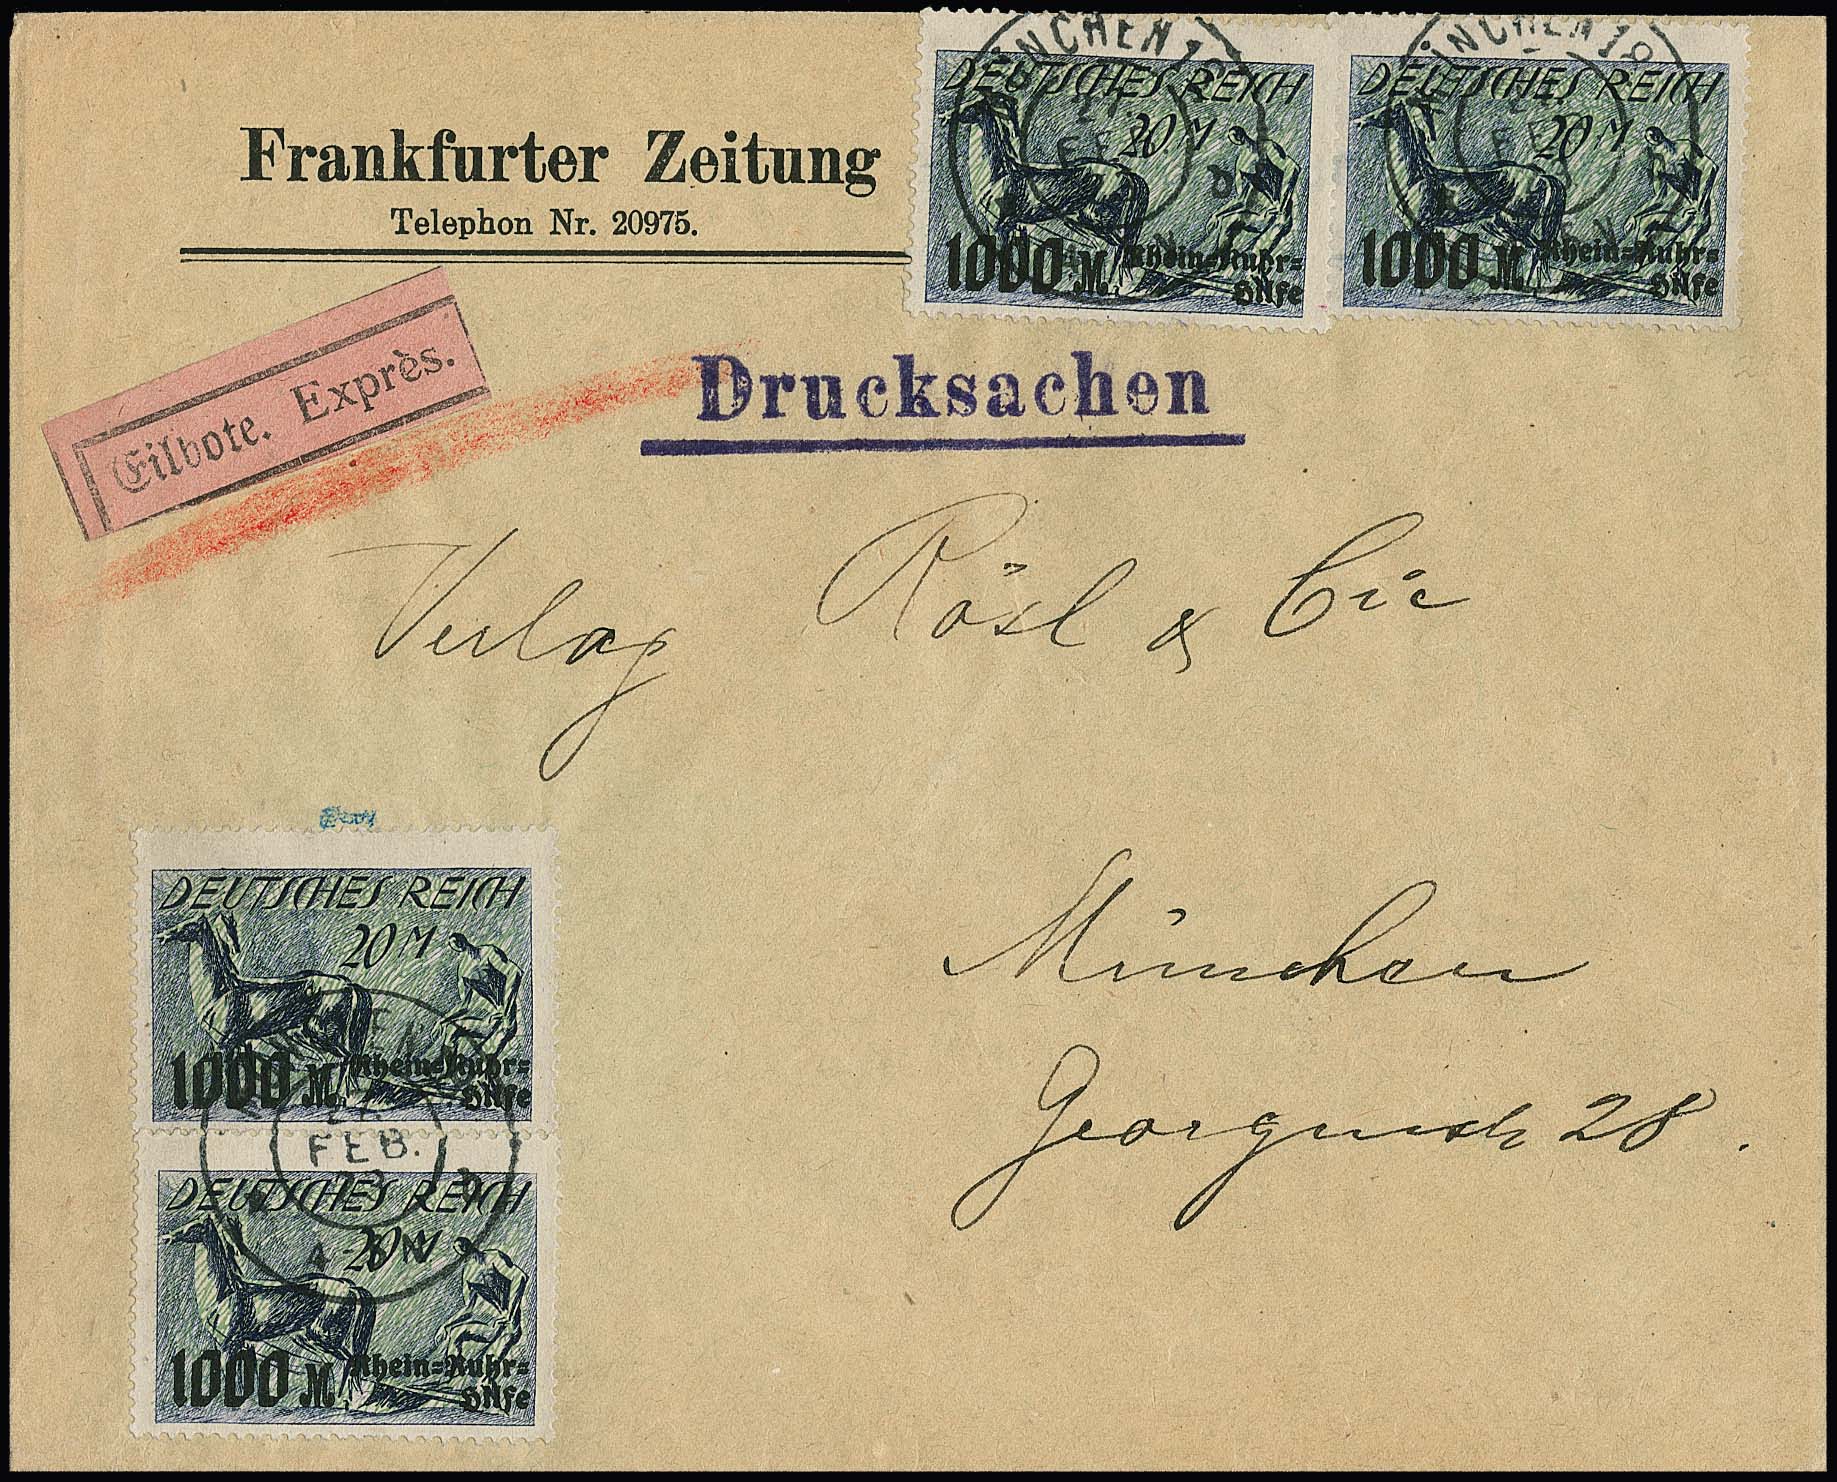 MÜNCHEN 18
MÜNCHEN 18
DEUTSCHES REICH
DEUTSCHES REICH
20 M
20 M
FEB
FEB
1000 M. Rhein-Ruhr-
Hilfe
1000 M. Rhein-Ruhr-
Hilfe
Frankfurter Zeitung
Telephon Nr. 20975.
Eilbote. Exprès.
Drucksachen
Verlag Rösl & Cie
München
Georgenstr 28.
DEUTSCHES REICH
20 M
1000 M. Rhein-Ruhr-
Hilfe
FEB.
DEUTSCHES REICH
20 M
1000 M. Rhein-Ruhr-
Hilfe